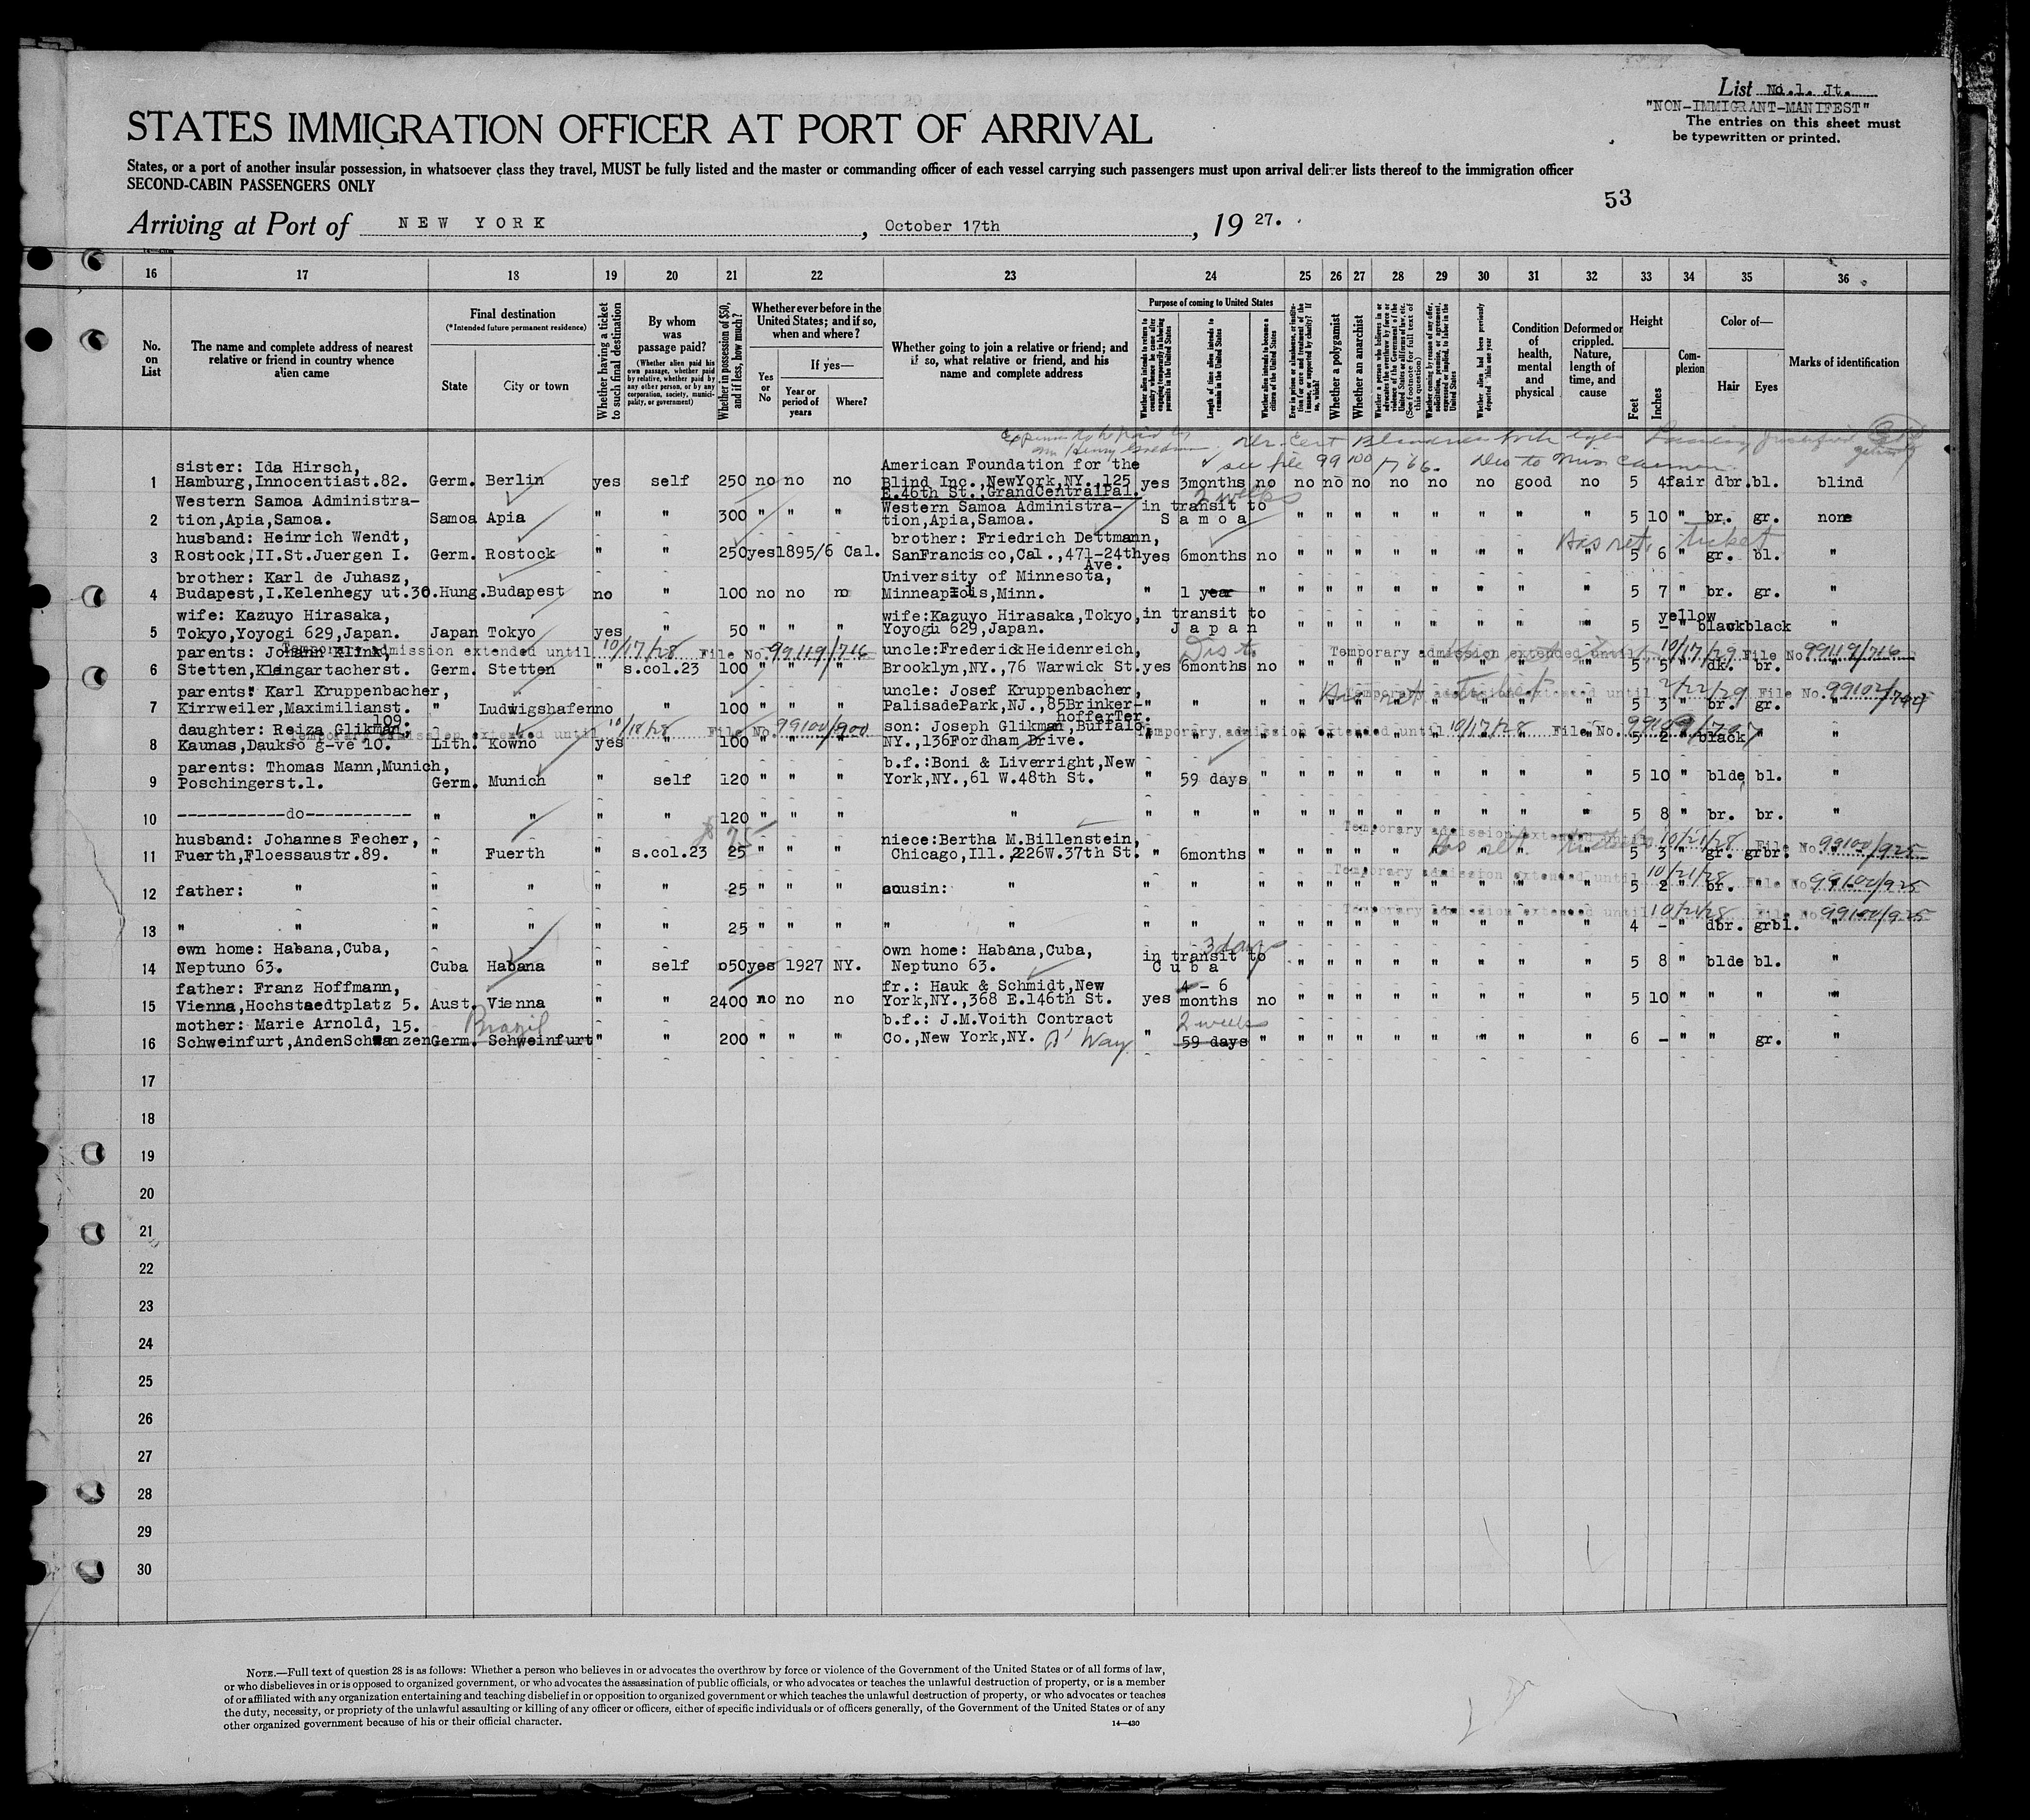 List No.1. Jt.
"NON-IMMIGRANT-MANIFEST"
The entries on this sheet must
be typewritten or printed.
STATES IMMIGRATION OFFICER AT PORT OF ARRIVAL
States, or a port of another insular possession, in whatsoever class they travel, MUST be fully listed and the master or commanding officer of each vessel carrying such passengers must upon arrival deliver lists thereof to the immigration officer
SECOND-CABIN PASSENGERS ONLY
53
Arriving at Port of NEW YORK, October 17th, 19 27.
16 17 18 19 20 21 22 23 24 25 26 27 28 29 30 31 32 33 34 35 36
No. on List
The name and complete address of nearest relative or friend in country whence alien came
Final destination
(*Intended future permanent residence)
State
City or town
Whether having a ticket to such final destination
By whom was passage paid?
(Whether alien paid his own passage, whether paid by relative, whether paid by any other person, or by any corporation, society, municipality, or government)
Whether in possession of $50, and if less, how much?
Whether ever before in the United States; and if so, when and where?
Yes or No
If yes—
Year or period of years
Where?
Whether going to join a relative or friend; and if so, what relative or friend, and his name and complete address
Purpose of coming to United States
Whether alien intends to return to country whence he came after engaging temporarily in laboring pursuits in the United States
Length of time alien intends to remain in the United States
Whether alien intends to become a citizen of the United States
Ever in prison or almshouse, or institution for care and treatment of the insane, or supported by charity? If so, which?
Whether a polygamist
Whether an anarchist
Whether a person who believes in or advocates the overthrow by force or violence of the Government of the United States or all forms of law, etc. (See footnote for full text of this question)
Whether coming by reason of any offer, solicitation, promise, or agreement, expressed or implied, to labor in the United States
Whether alien had been previously deported within one year
Condition of health, mental and physical
Deformed or crippled. Nature, length of time, and cause
Height
Feet
Inches
Complexion
Color of—
Hair
Eyes
Marks of identification
see file 99100/766.
sister: Ida Hirsch, American Foundation for the
1 Hamburg,Innocentiast.82. Germ. Berlin yes self 250 no no no Blind Inc.,NewYork,NY.,125 yes 3months no no no no no no no good no 5 4 fair dbr. bl. blind
E.46th St.,GrandCentralPal.
2 weeks
Western Samoa Administra- Western Samoa Administra- in transit to
2 tion,Apia,Samoa. Samoa Apia " " 300 " " " tion,Apia,Samoa. Samoa " " " " " " " " 5 10 " br. gr. none
husband: Heinrich Wendt, brother: Friedrich Dettmann, Has ret. ticket
3 Rostock,II.St.Juergen I. Germ. Rostock " " 250 yes 1895/6 Cal. SanFrancisco,Cal.,471-24th yes 6months no " " " " " " " " 5 6 " gr. bl. "
Ave.
brother: Karl de Juhasz, University of Minnesota,
4 Budapest,I.Kelenhegy ut.30. Hung. Budapest no " 100 no no no Minneapolis,Minn. " 1 year " " " " " " " " " 5 7 " br. gr. "
wife: Kazuyo Hirasaka, wife:Kazuyo Hirasaka,Tokyo, in transit to yellow
5 Tokyo,Yoyogi 629,Japan. Japan Tokyo yes " 50 " " " Yoyogi 629,Japan. Japan " " " " " " " " 5 - black black "
parents: Johann Klink, uncle:Frederick Heidenreich,
Temporary admission extended until 10/17/28 File No. 99119/716
Temporary admission extended until 10/17/29 File No. 99119/716
6 Stetten,Kleingartacherst. Germ. Stetten " s.col.23 100 " " " Brooklyn,NY.,76 Warwick St. yes 6months no " " " " " " " " 5 5 " dk. br.
parents: Karl Kruppenbacher, uncle: Josef Kruppenbacher,
Temporary admission extended until 2/22/29 File No. 99102/794
7 Kirrweiler,Maximilianst. " Ludwigshafen no " 100 " " " PalisadePark,NJ.,85Brinker- " " " " " " " " " " " 5 3 " br. gr.
109. hofferTer.
daughter: Reiza Glikman, son: Joseph Glikman,Buffalo
Temporary admission extended until 10/18/28 File No. 99100/900
Temporary admission extended until 10/17/28 File No.
8 Kaunas,Daukso g-ve 10. Lith. Kowno yes " 100 " " " NY.,136Fordham Drive. " " " " " " " " " " " 5 2 " black " "
parents: Thomas Mann,Munich, b.f.:Boni & Liverright,New
9 Poschingerst.1. Germ. Munich " self 120 " " " York,NY.,61 W.48th St. " 59 days " " " " " " " " " 5 10 " blde bl. "
10 -----------do----------- " " " " 120 " " " " " " " " " " " " " " " 5 8 " br. br. "
$75
husband: Johannes Fecher, niece:Bertha M.Billenstein,
Temporary admission extended until 10/21/28 File No. 99100/925
11 Fuerth,Floessaustr.89. " Fuerth " s.col.23 25 " " " Chicago,Ill.,2226W.37th St. " 6months " " " " " " " " " 5 3 " gr. grbr.
Temporary admission extended until 10/21/28 File No. 99100/925
12 father: " " " " " 25 " " " cousin: " " " " " " " " " " " " 5 2 " br. "
Temporary admission extended until 10/21/28 File No. 99100/925
13 " " " " " " 25 " " " " " " " " " " " " " " " " 4 - " dbr. grbl. "
own home: Habana,Cuba, own home: Habana,Cuba, 3 days
in transit to
14 Neptuno 63. Cuba Habana " self 50 yes 1927 NY. Neptuno 63. Cuba " " " " " " " " 5 8 " blde bl. "
father: Franz Hoffmann, fr.: Hauk & Schmidt,New 4 - 6
15 Vienna,Hochstaedtplatz 5. Aust. Vienna " " 2400 no no no York,NY.,368 E.146th St. yes months no " " " " " " " " 5 10 " " " "
mother: Marie Arnold, 15. Brazil b.f.: J.M.Voith Contract 2 weeks
16 Schweinfurt,AndenSchanzen Germ. Schweinfurt " " 200 " " " Co.,New York,NY. B' Way " 59 days " " " " " " " " " 6 - " " gr. "
17
18
19
20
21
22
23
24
25
26
27
28
29
30
NOTE.—Full text of question 28 is as follows: Whether a person who believes in or advocates the overthrow by force or violence of the Government of the United States or of all forms of law,
or who disbelieves in or is opposed to organized government, or who advocates the assassination of public officials, or who advocates or teaches the unlawful destruction of property, or is a member
of or affiliated with any organization entertaining and teaching disbelief in or opposition to organized government or which teaches the unlawful destruction of property, or who advocates or teaches
the duty, necessity, or propriety of the unlawful assaulting or killing of any officer or officers, either of specific individuals or of officers generally, of the Government of the United States or of any
other organized government because of his or their official character.
14—430